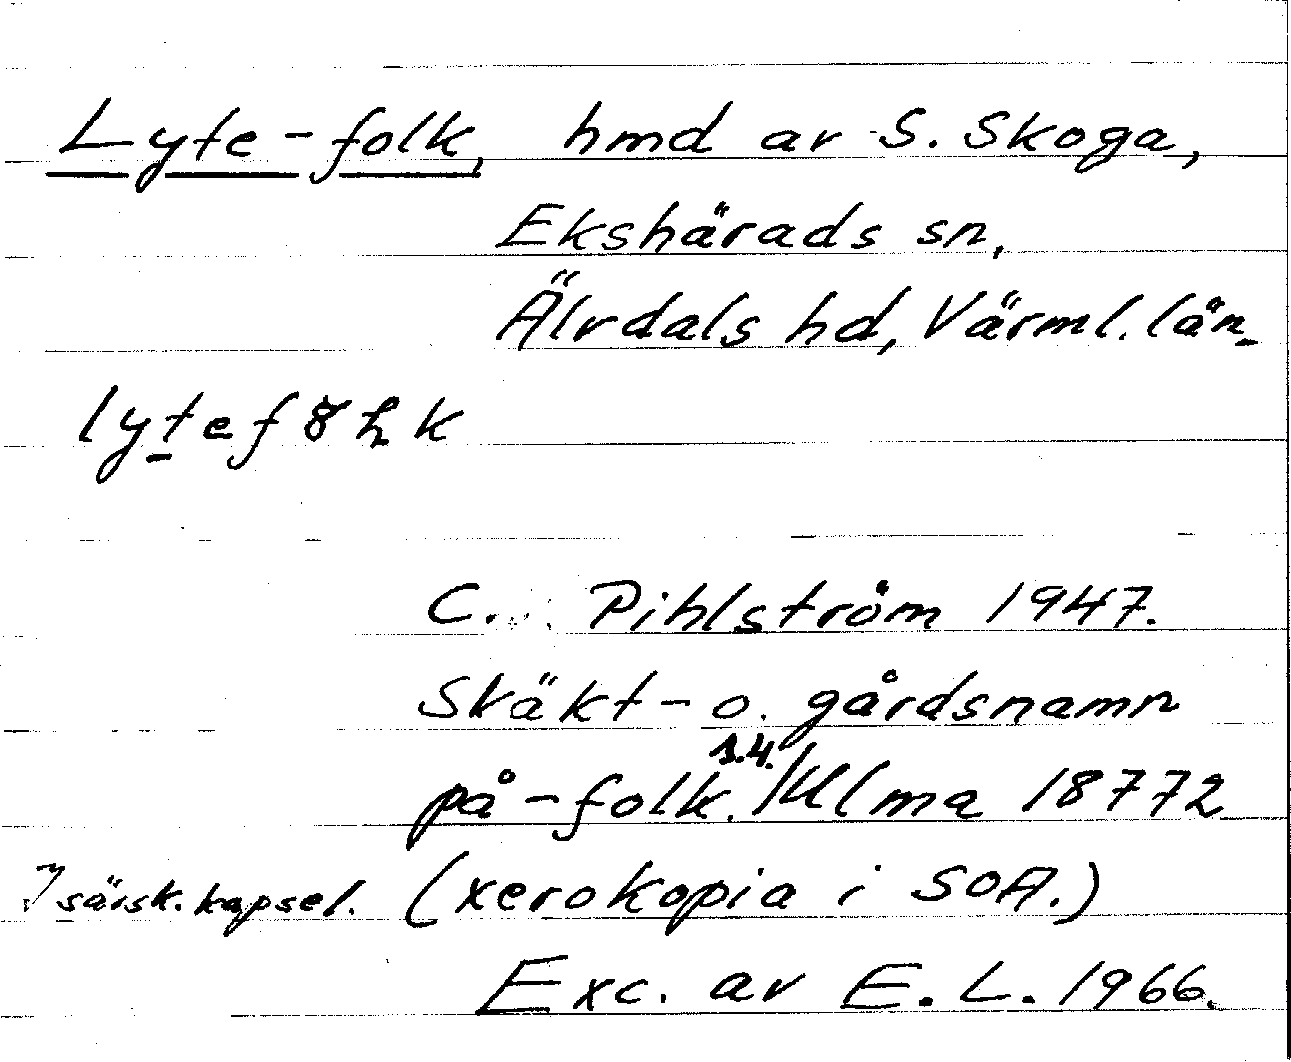 Lyte-folk, hmd av S. Skoga,
Ekshärads sn,
Älvdals hd, Värml. län.
lytef8hk
C. Pihlström 1947.
Släkt- o. gårdsnamn
på -folk. s.4. /Ulma 18772
I särsk. kapsel. (xerokopia i SOA.)
Exc. av E. L. 1966.